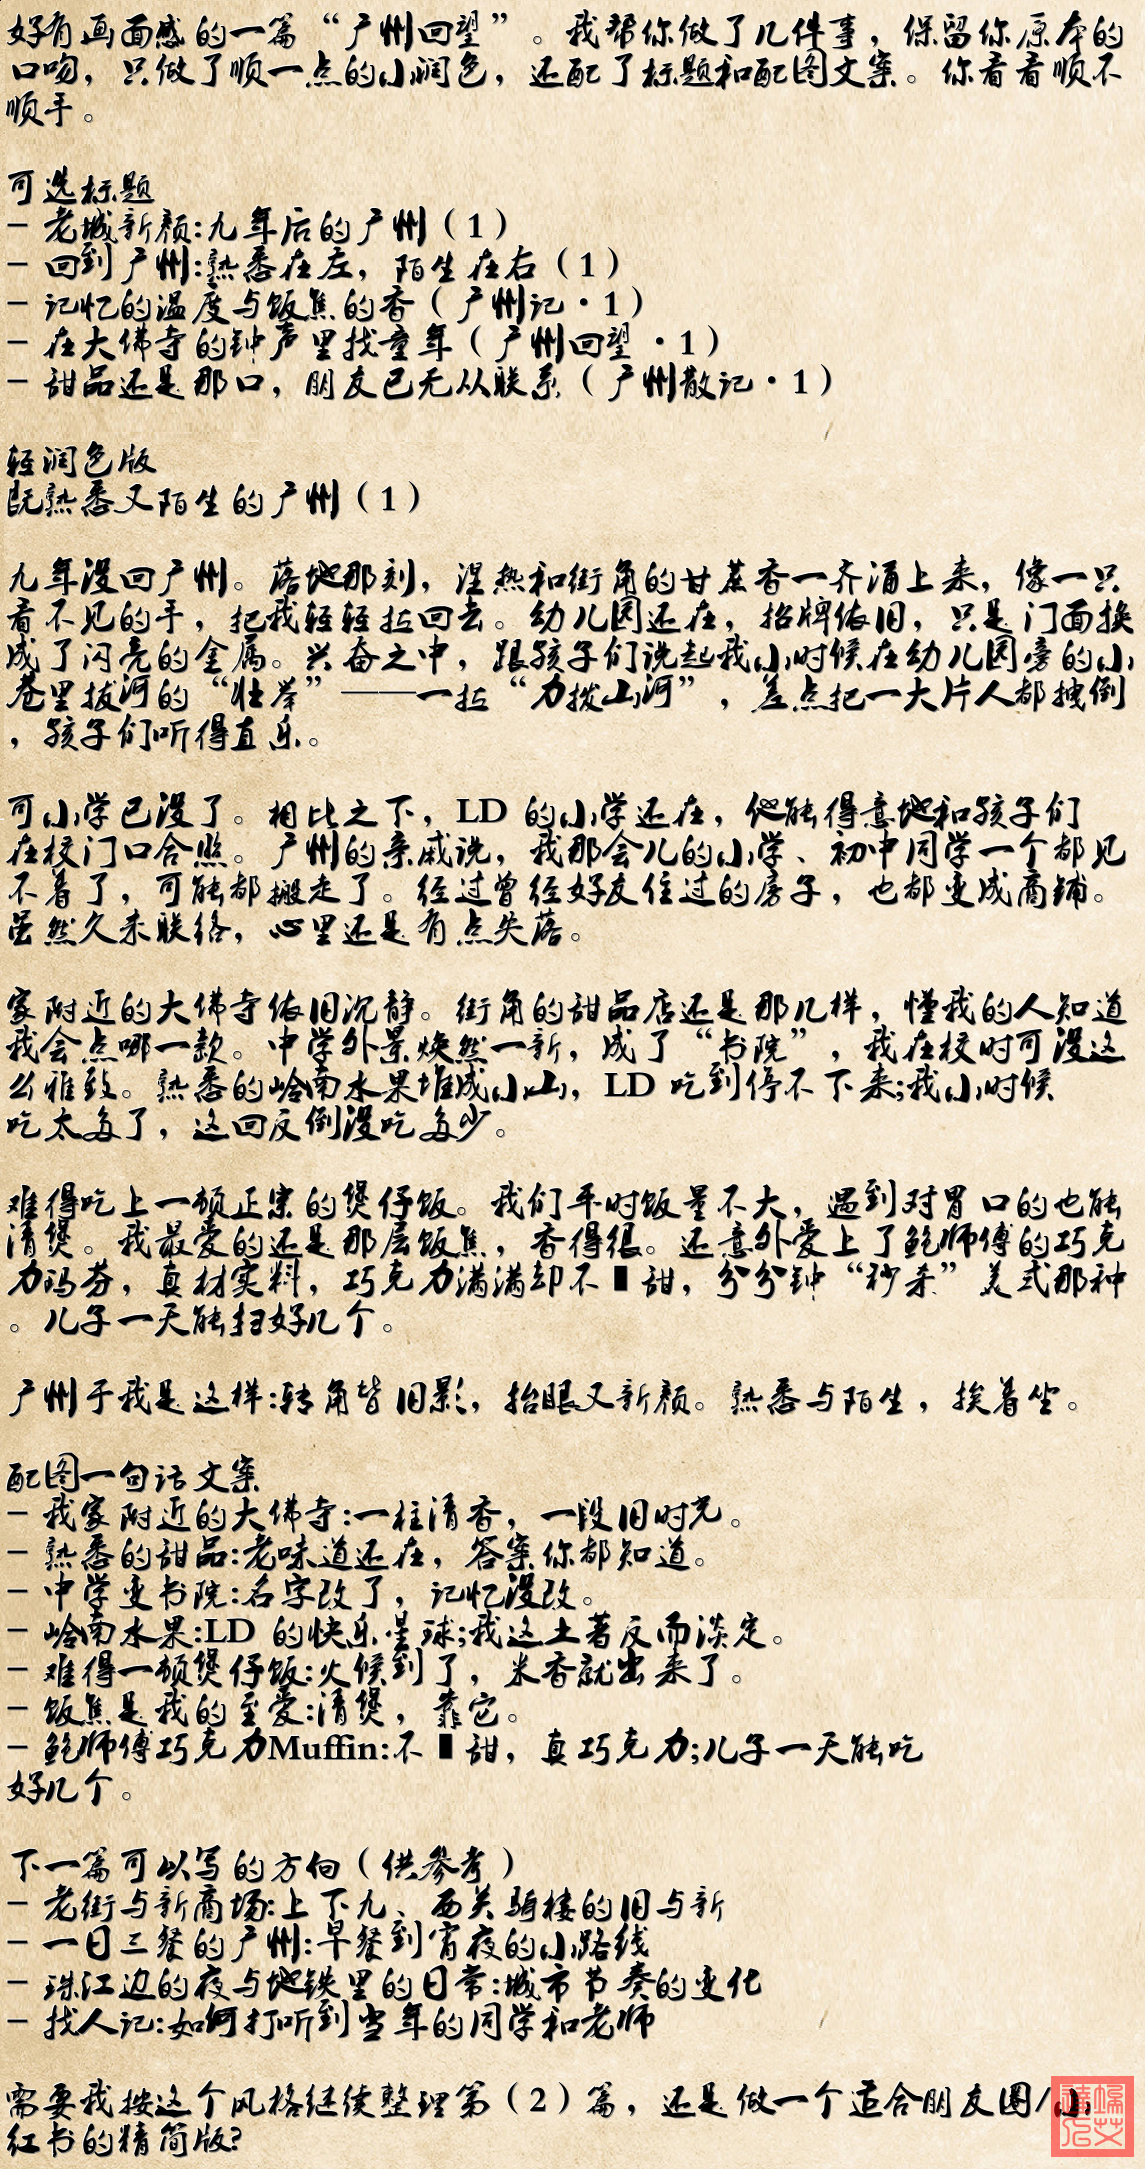 好有画面感的一篇“广州回望”。我帮你做了几件事，保留你原本的
口吻，只做了顺一点的小润色，还配了标题和配图文案。你看看顺不
顺手。
可选标题
- 老城新颜:九年后的广州（1）
- 回到广州:熟悉在左，陌生在右（1）
- 记忆的温度与饭焦的香（广州记·1）
- 在大佛寺的钟声里找童年（广州回望·1）
- 甜品还是那口，朋友已无从联系（广州散记·1）
轻润色版
既熟悉又陌生的广州（1）
九年没回广州。落地那刻，湿热和街角的甘蔗香一齐涌上来，像一只
看不见的手，把我轻轻拉回去。幼儿园还在，招牌依旧，只是门面换
成了闪亮的金属。兴奋之中，跟孩子们说起我小时候在幼儿园旁的小
巷里拔河的“壮举”——一拉“力拨山河”，差点把一大片人都拽倒
，孩子们听得直乐。
可小学已没了。相比之下，LD 的小学还在，他能得意地和孩子们
在校门口合照。广州的亲戚说，我那会儿的小学、初中同学一个都见
不着了，可能都搬走了。经过曾经好友住过的房子，也都变成商铺。
虽然久未联络，心里还是有点失落。
家附近的大佛寺依旧沉静。街角的甜品店还是那几样，懂我的人知道
我会点哪一款。中学外景焕然一新，成了“书院”，我在校时可没这
么雅致。熟悉的岭南水果堆成小山，LD 吃到停不下来;我小时候
吃太多了，这回反倒没吃多少。
难得吃上一顿正宗的煲仔饭。我们平时饭量不大，遇到对胃口的也能
清煲。我最爱的还是那层饭焦，香得很。还意外爱上了鲍师傅的巧克
力玛芬，真材实料，巧克力满满却不甜，分分钟“秒杀”美式那种
。儿子一天能扫好几个。
广州于我是这样:转角皆旧影，抬眼又新颜。熟悉与陌生，挨着坐。
配图一句话文案
- 我家附近的大佛寺:一柱清香，一段旧时光。
- 熟悉的甜品:老味道还在，答案你都知道。
- 中学变书院:名字改了，记忆没改。
- 岭南水果:LD 的快乐星球;我这土著反而淡定。
- 难得一顿煲仔饭:火候到了，米香就出来了。
- 饭焦是我的至爱:清煲，靠它。
- 鲍师傅巧克力Muffin:不甜，真巧克力;儿子一天能吃
好几个。
下一篇可以写的方向（供参考）
- 老街与新商场:上下九、西关骑楼的旧与新
- 一日三餐的广州:早餐到宵夜的小路线
- 珠江边的夜与地铁里的日常:城市节奏的变化
- 找人记:如何打听到当年的同学和老师
需要我按这个风格继续整理第（2）篇，还是做一个适合朋友圈/小
红书的精简版?